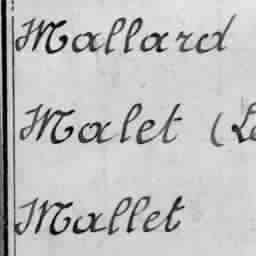 Mallard
Malet (Le
Mallet